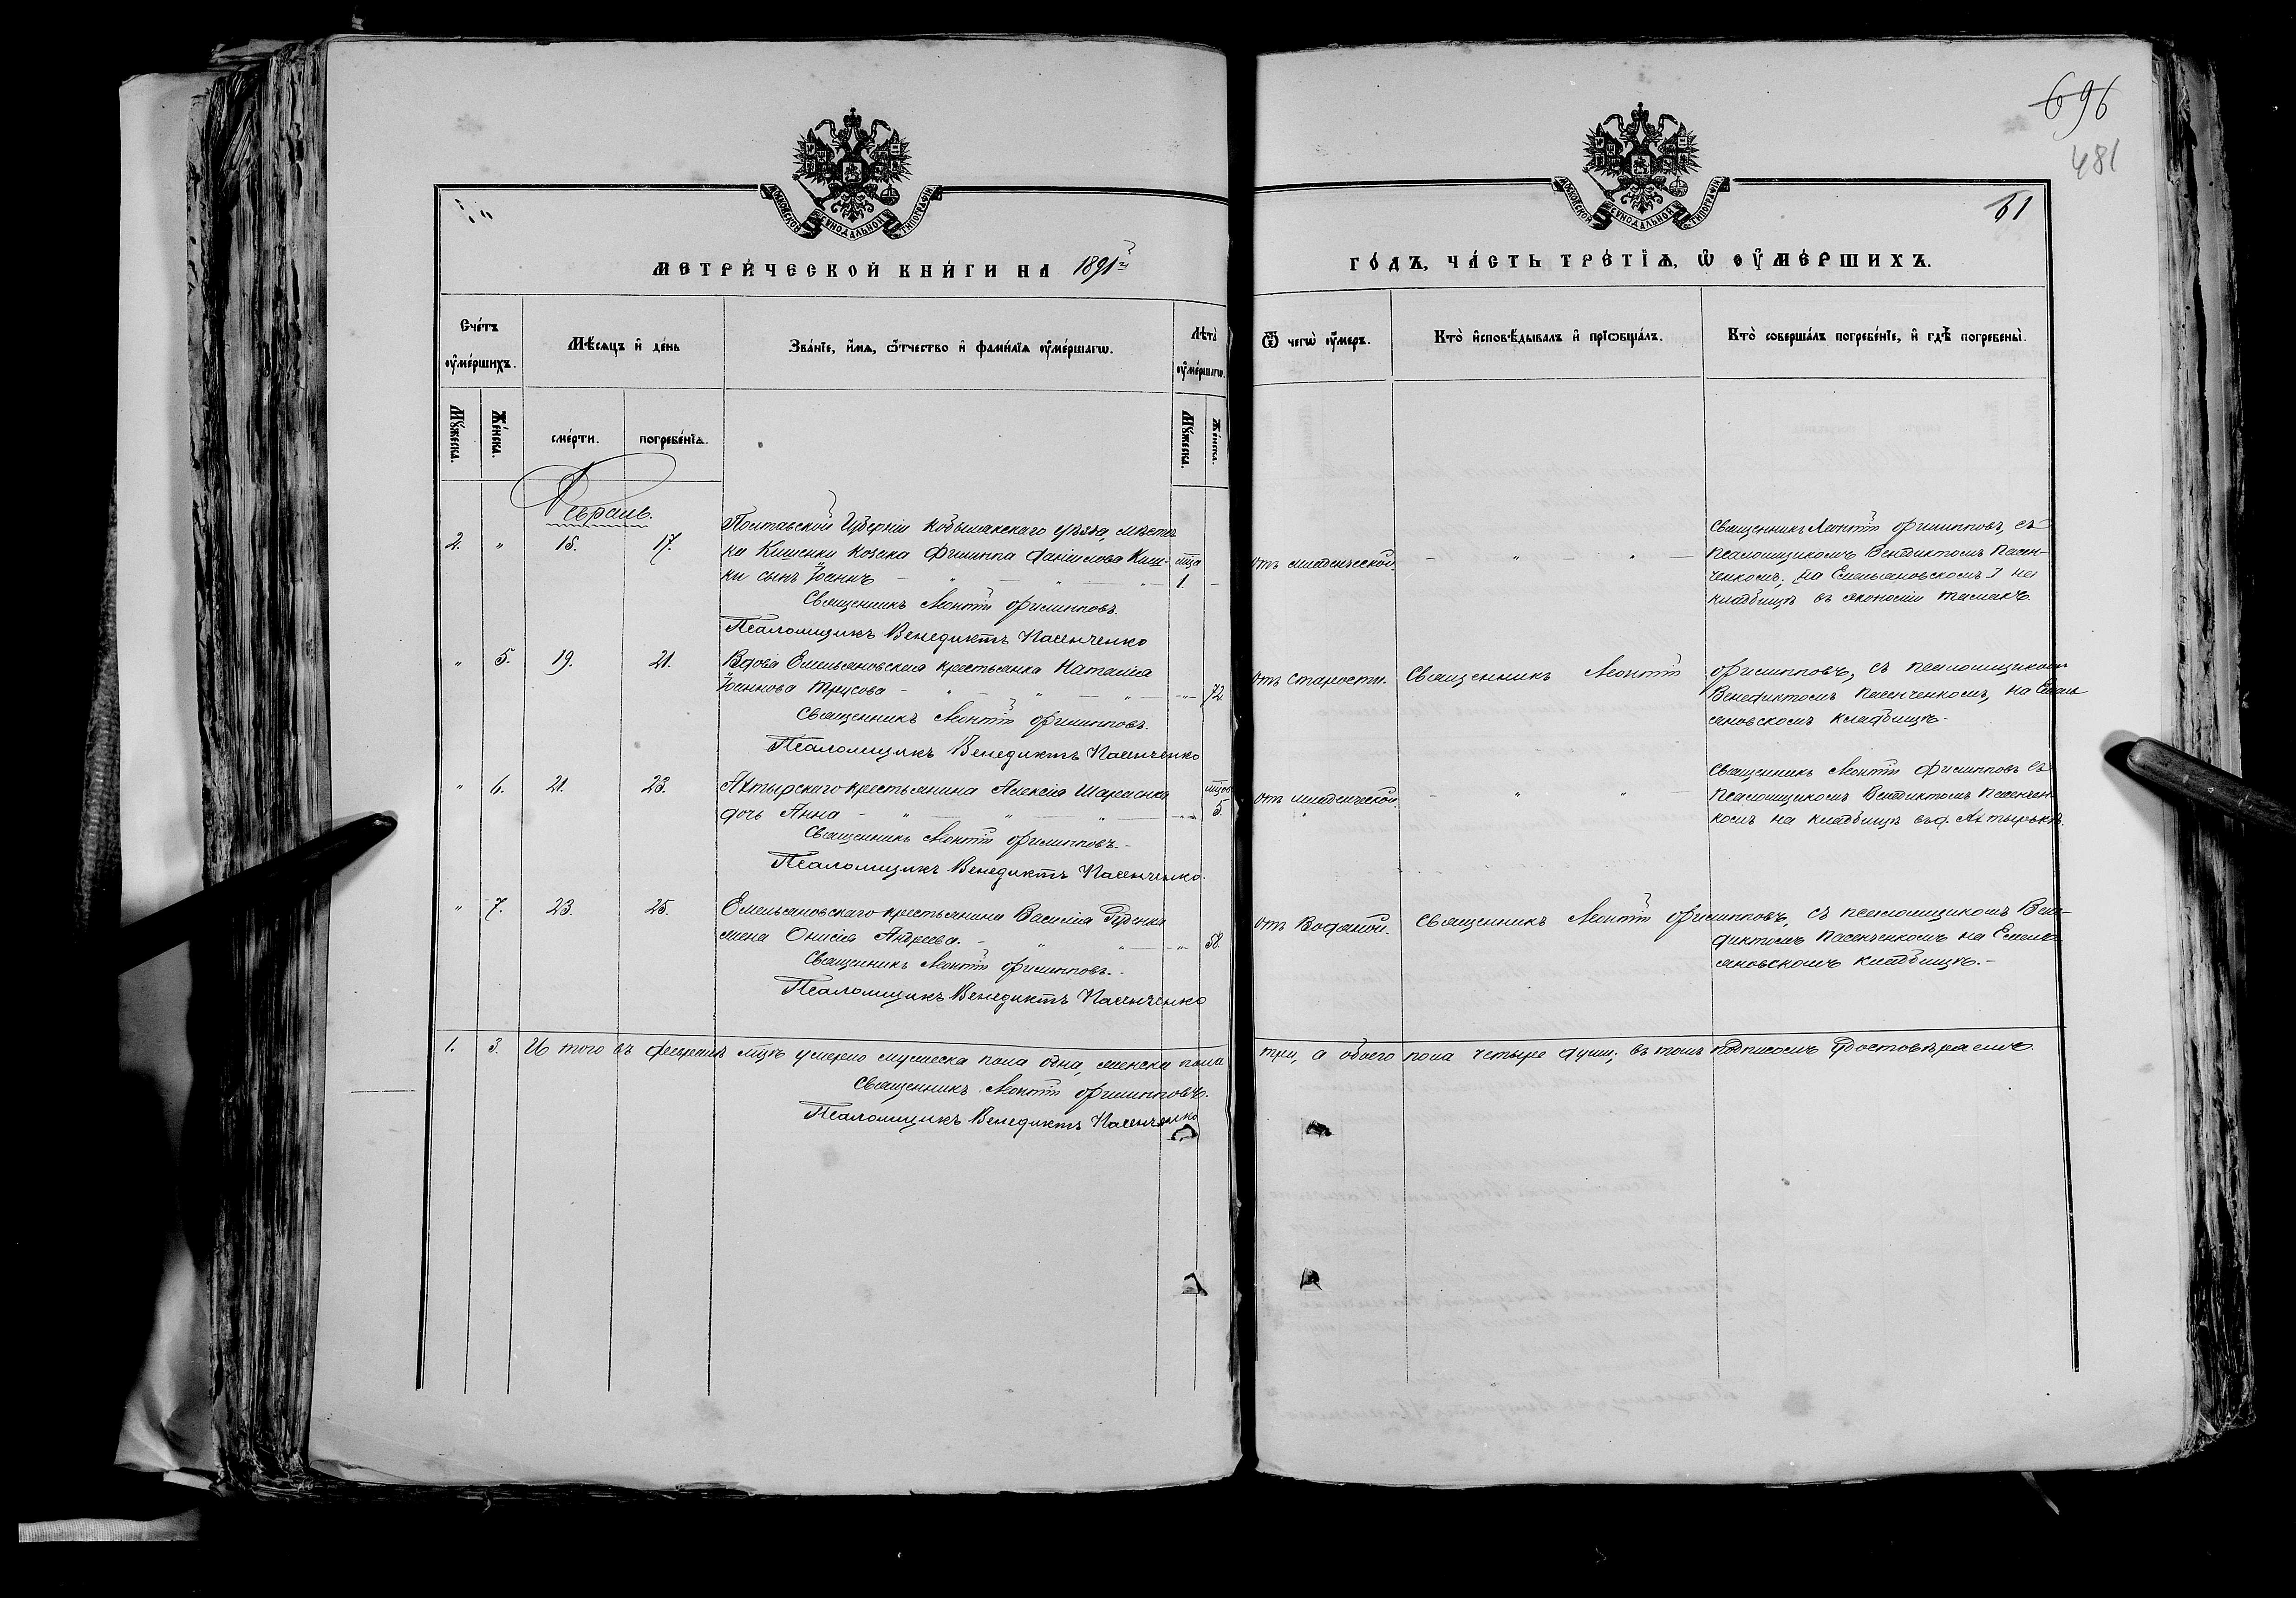 696
481
61
МОСКОВСКОЙ СѴНОДАЛЬНОЙ ТИПОГРАФІИ
МОСКОВСКОЙ СѴНОДАЛЬНОЙ ТИПОГРАФІИ
МЕТРИ́ЧЕСКОЙ КНИ́ГИ НА 1891й
ГО́ДЪ, ЧА́СТЬ ТРЕ́ТІѦ, Ѡ҆ ОУ҆МЕ́РШИХЪ.
Сче́тъ оу҆ме́ршихъ.
Мѣ́сяцъ и҆ де́нь
Зва́нїе, и҆́мѧ, ѻ҆́тчество и҆ фами́лїѧ оу҆ме́ршагѡ.
Лѣта̀ оу҆ме́ршагѡ.
Ѿ чегѡ̀ оу҆́меръ.
Кто̀ и҆сповѣ́дывалъ и҆ прїѡбща́лъ.
Кто̀ соверша́лъ погребе́нїе, и҆ гдѣ̀ погребены̀.
Мꙋ́жеска.
Же́нска.
сме́рти.
погребе́нїѧ.
Мꙋ́жеска.
Же́нска.
Февраль.
2. " 15. 17.
Полтавской Губерніи Кобылякскаго уѣзда, мѣстеч
ка Кишенки козака Филиппа Даніилова Киш-
ки сынъ Іоаннъ - " - " - "
мца
1. -
Священникъ Леонтій Филипповъ.
Псаломщикъ Венедиктъ Пасенченко
отъ младенческой.
- " - " -
Священникъ Леонтій Филипповъ, съ
псаломщикомъ Венедиктомъ Пасен-
ченкомъ, на Емельяновскомъ
кладбищѣ въ экономіи
" 5. 19. 21.
Вдова Емельяновская крестьянка Наталія
Іоаннова Трусова - " - " - " - 72
Священникъ Леонтій Филипповъ.
Псаломщикъ Венедиктъ Пасенченко
отъ старости.
Священникъ Леонтій Филипповъ, съ псаломщикомъ
Венедиктомъ Пасенченкомъ, на Емель
яновскомъ кладбищѣ.-
" 6. 21. 23.
Ахтырскаго крестьянина Алексія
дочь Анна - " - " - "
мцовъ
5.
Священникъ Леонтій Филипповъ.-
Псаломщикъ Венедиктъ Пасенченко.
отъ младенческой.
- " "
Священникъ Леонтій Филипповъ съ
псаломщикомъ Венедиктомъ Пасенчен-
комъ на кладбищѣ въ д. Ахтыркѣ.
" 7. 23. 25.
Емельяновскаго крестьянина Василія Руденка
жена Онисія Андреева. - " " - " - 58.
Священникъ Леонтій Филипповъ.-
Псаломщикъ Венедиктъ Пасенченко
отъ Водяной.
Священникъ Леонтій Филипповъ, съ псаломщикомъ Вене-
диктомъ Пасенченкомъ на Емель-
яновскомъ кладбищѣ.-
1. 3. И того въ февралѣ мцѣ умерло мужеска пола одна, женска пола три, а обоего пола четыре души; въ томъ подписомъ удостовѣряемъ.
Священникъ Леонтій Филипповъ.
Псаломщикъ Венедиктъ Пасенченко